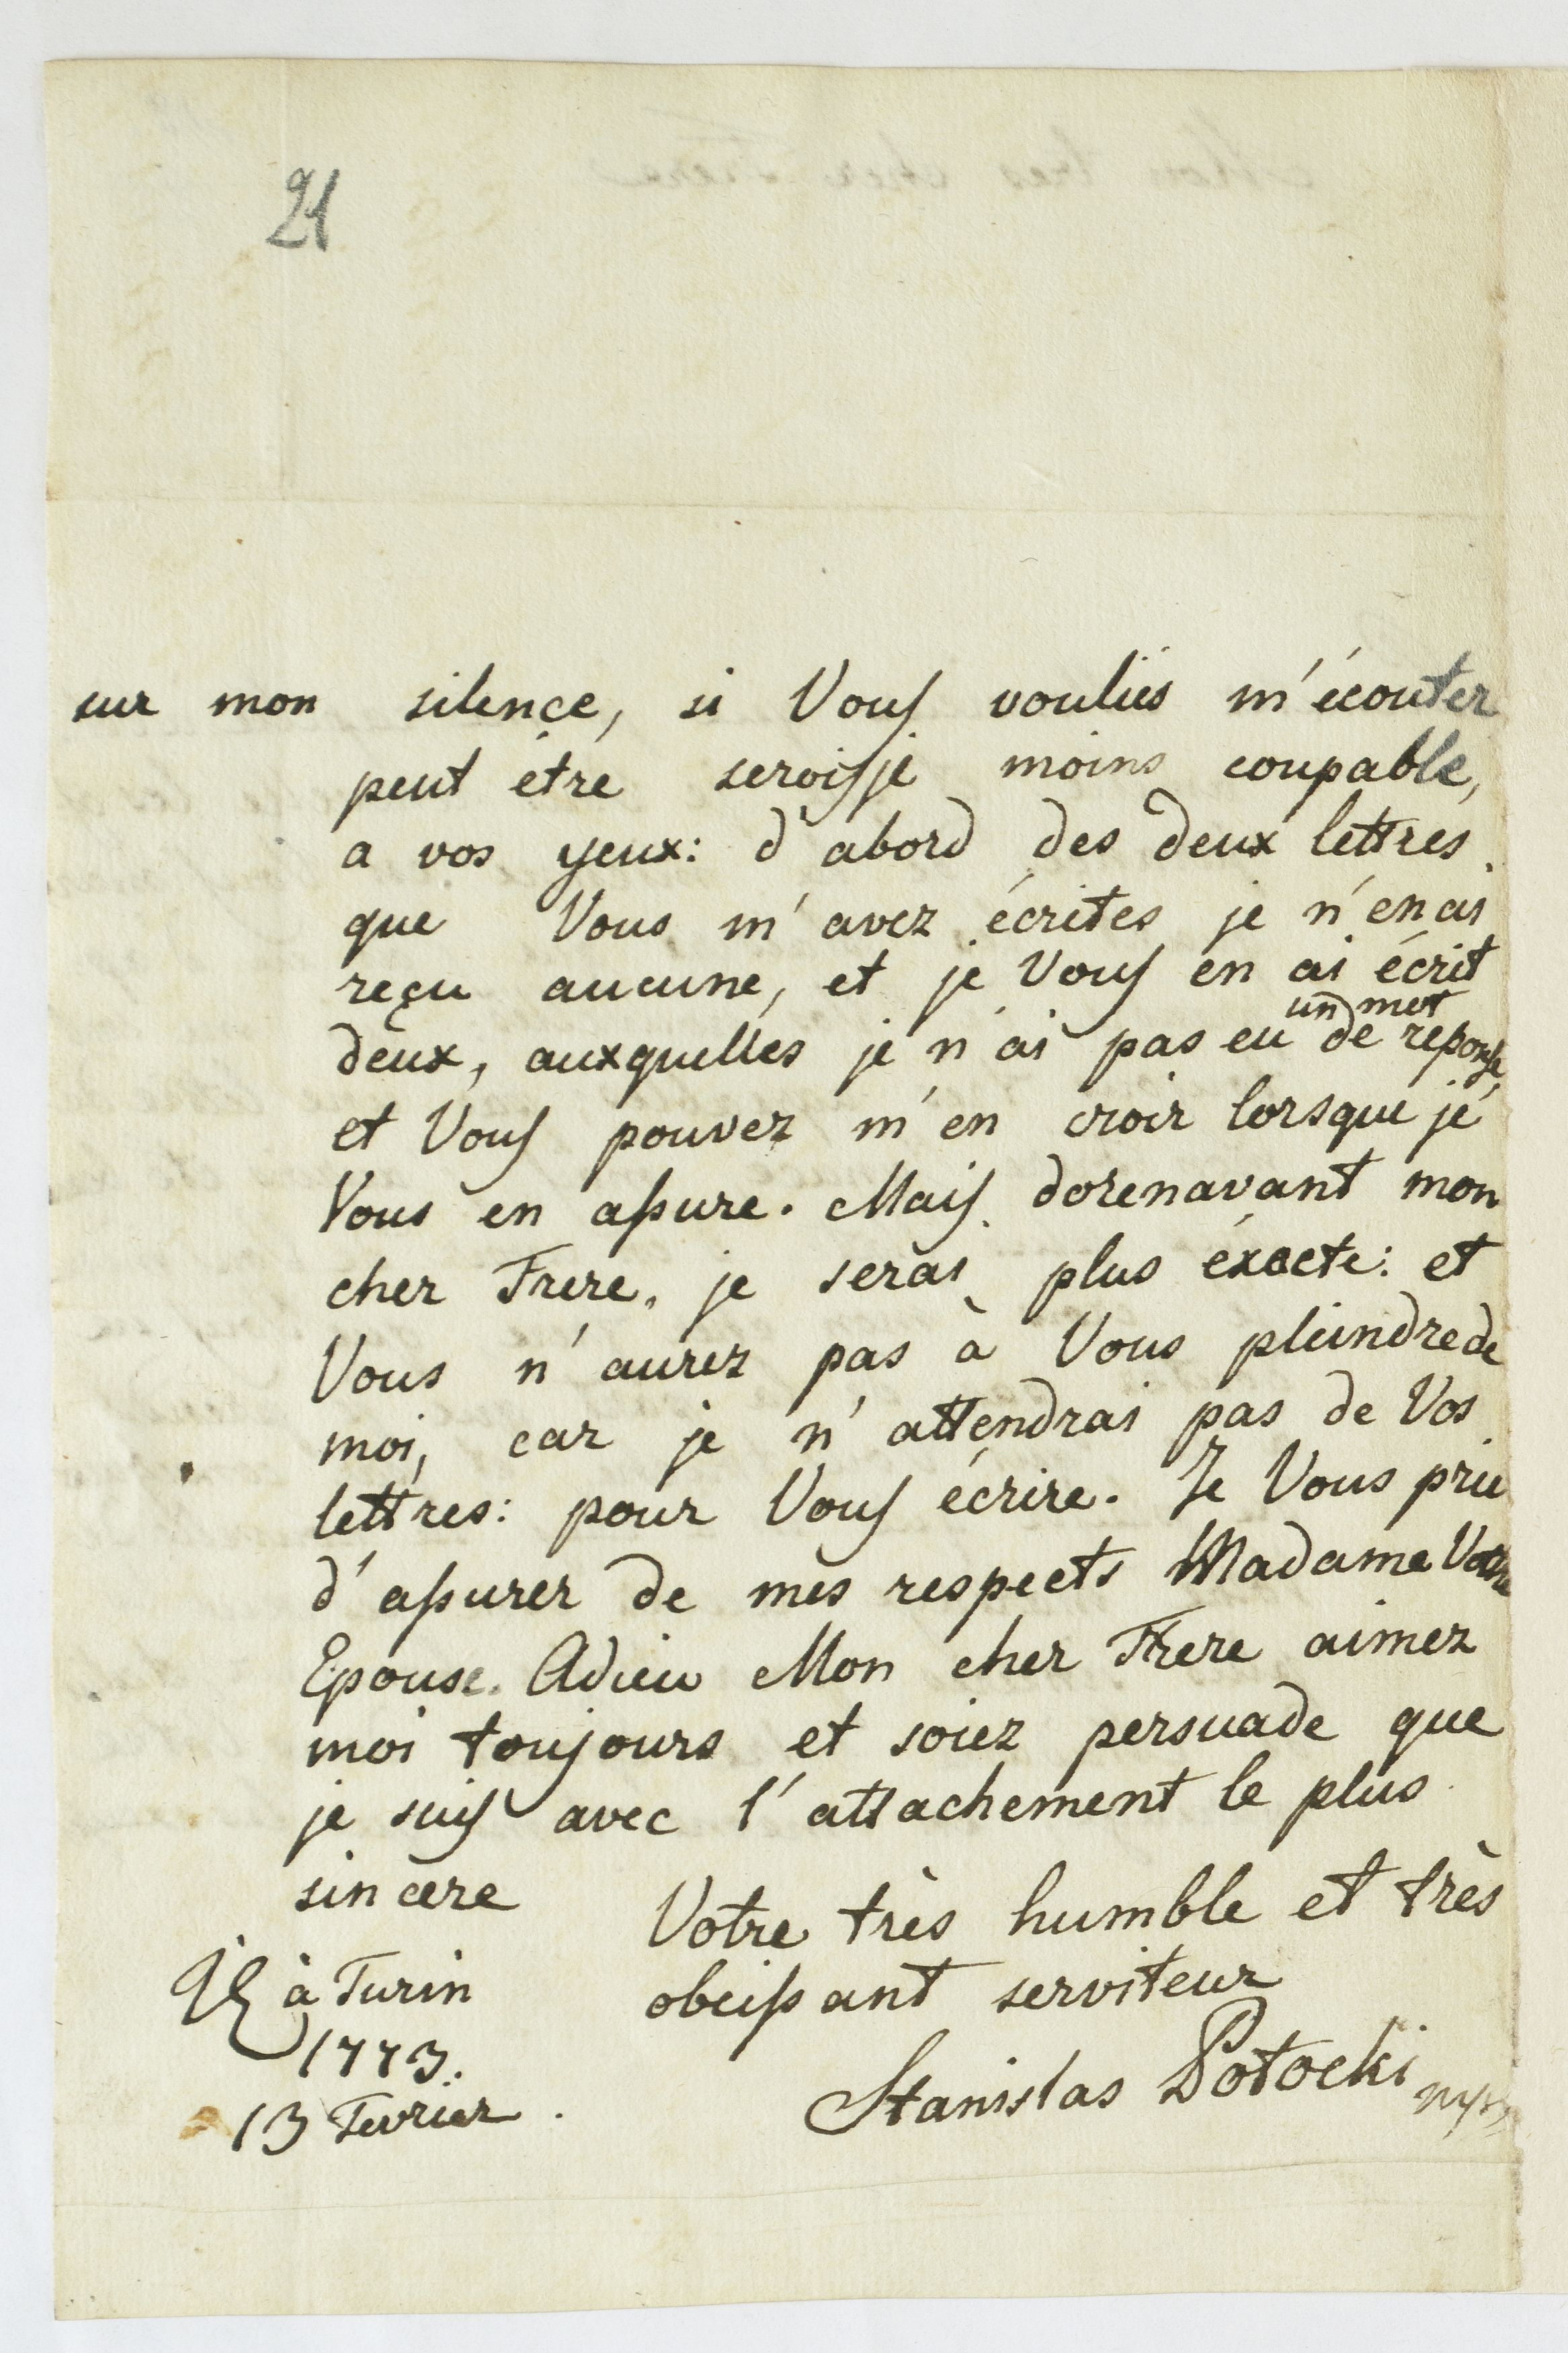 21
sur mon silence, si Vous vouliés m'écouter
peut étre seroisje moins coupable,
a vos yeux: d'abord des deux lettres
que Vous m'avez écrites je n'en ai
reçu aucune, et je Vous en ai écrit
deux, auxquelles je n'ai pas eu un mot de reponse,
et Vous pouvez m'en croir lorsque je
Vous en assure. Mais dorenavant mon
cher Frere, je serai plus éxacte: et
Vous n'aurez pas à Vous pleindre de
moi, car je n'attendrai pas de Vos
lettres: pour Vous écrire. Je Vous prie
d'assurer de mes respects Madame Votre
Epouse. Adieu Mon cher Frere aimez
moi toujours et soiez persuade que
je suis avec l'attachement le plus
sincère
Votre très humble et très
obeissant serviteur
Stanislas Potocki
à Turin
1773.
13 Fevrier.